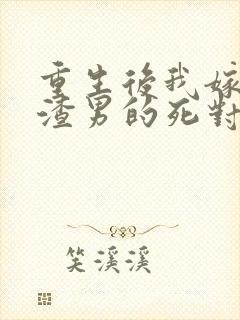 重生後我嫁
渣男的死對
笑溪溪